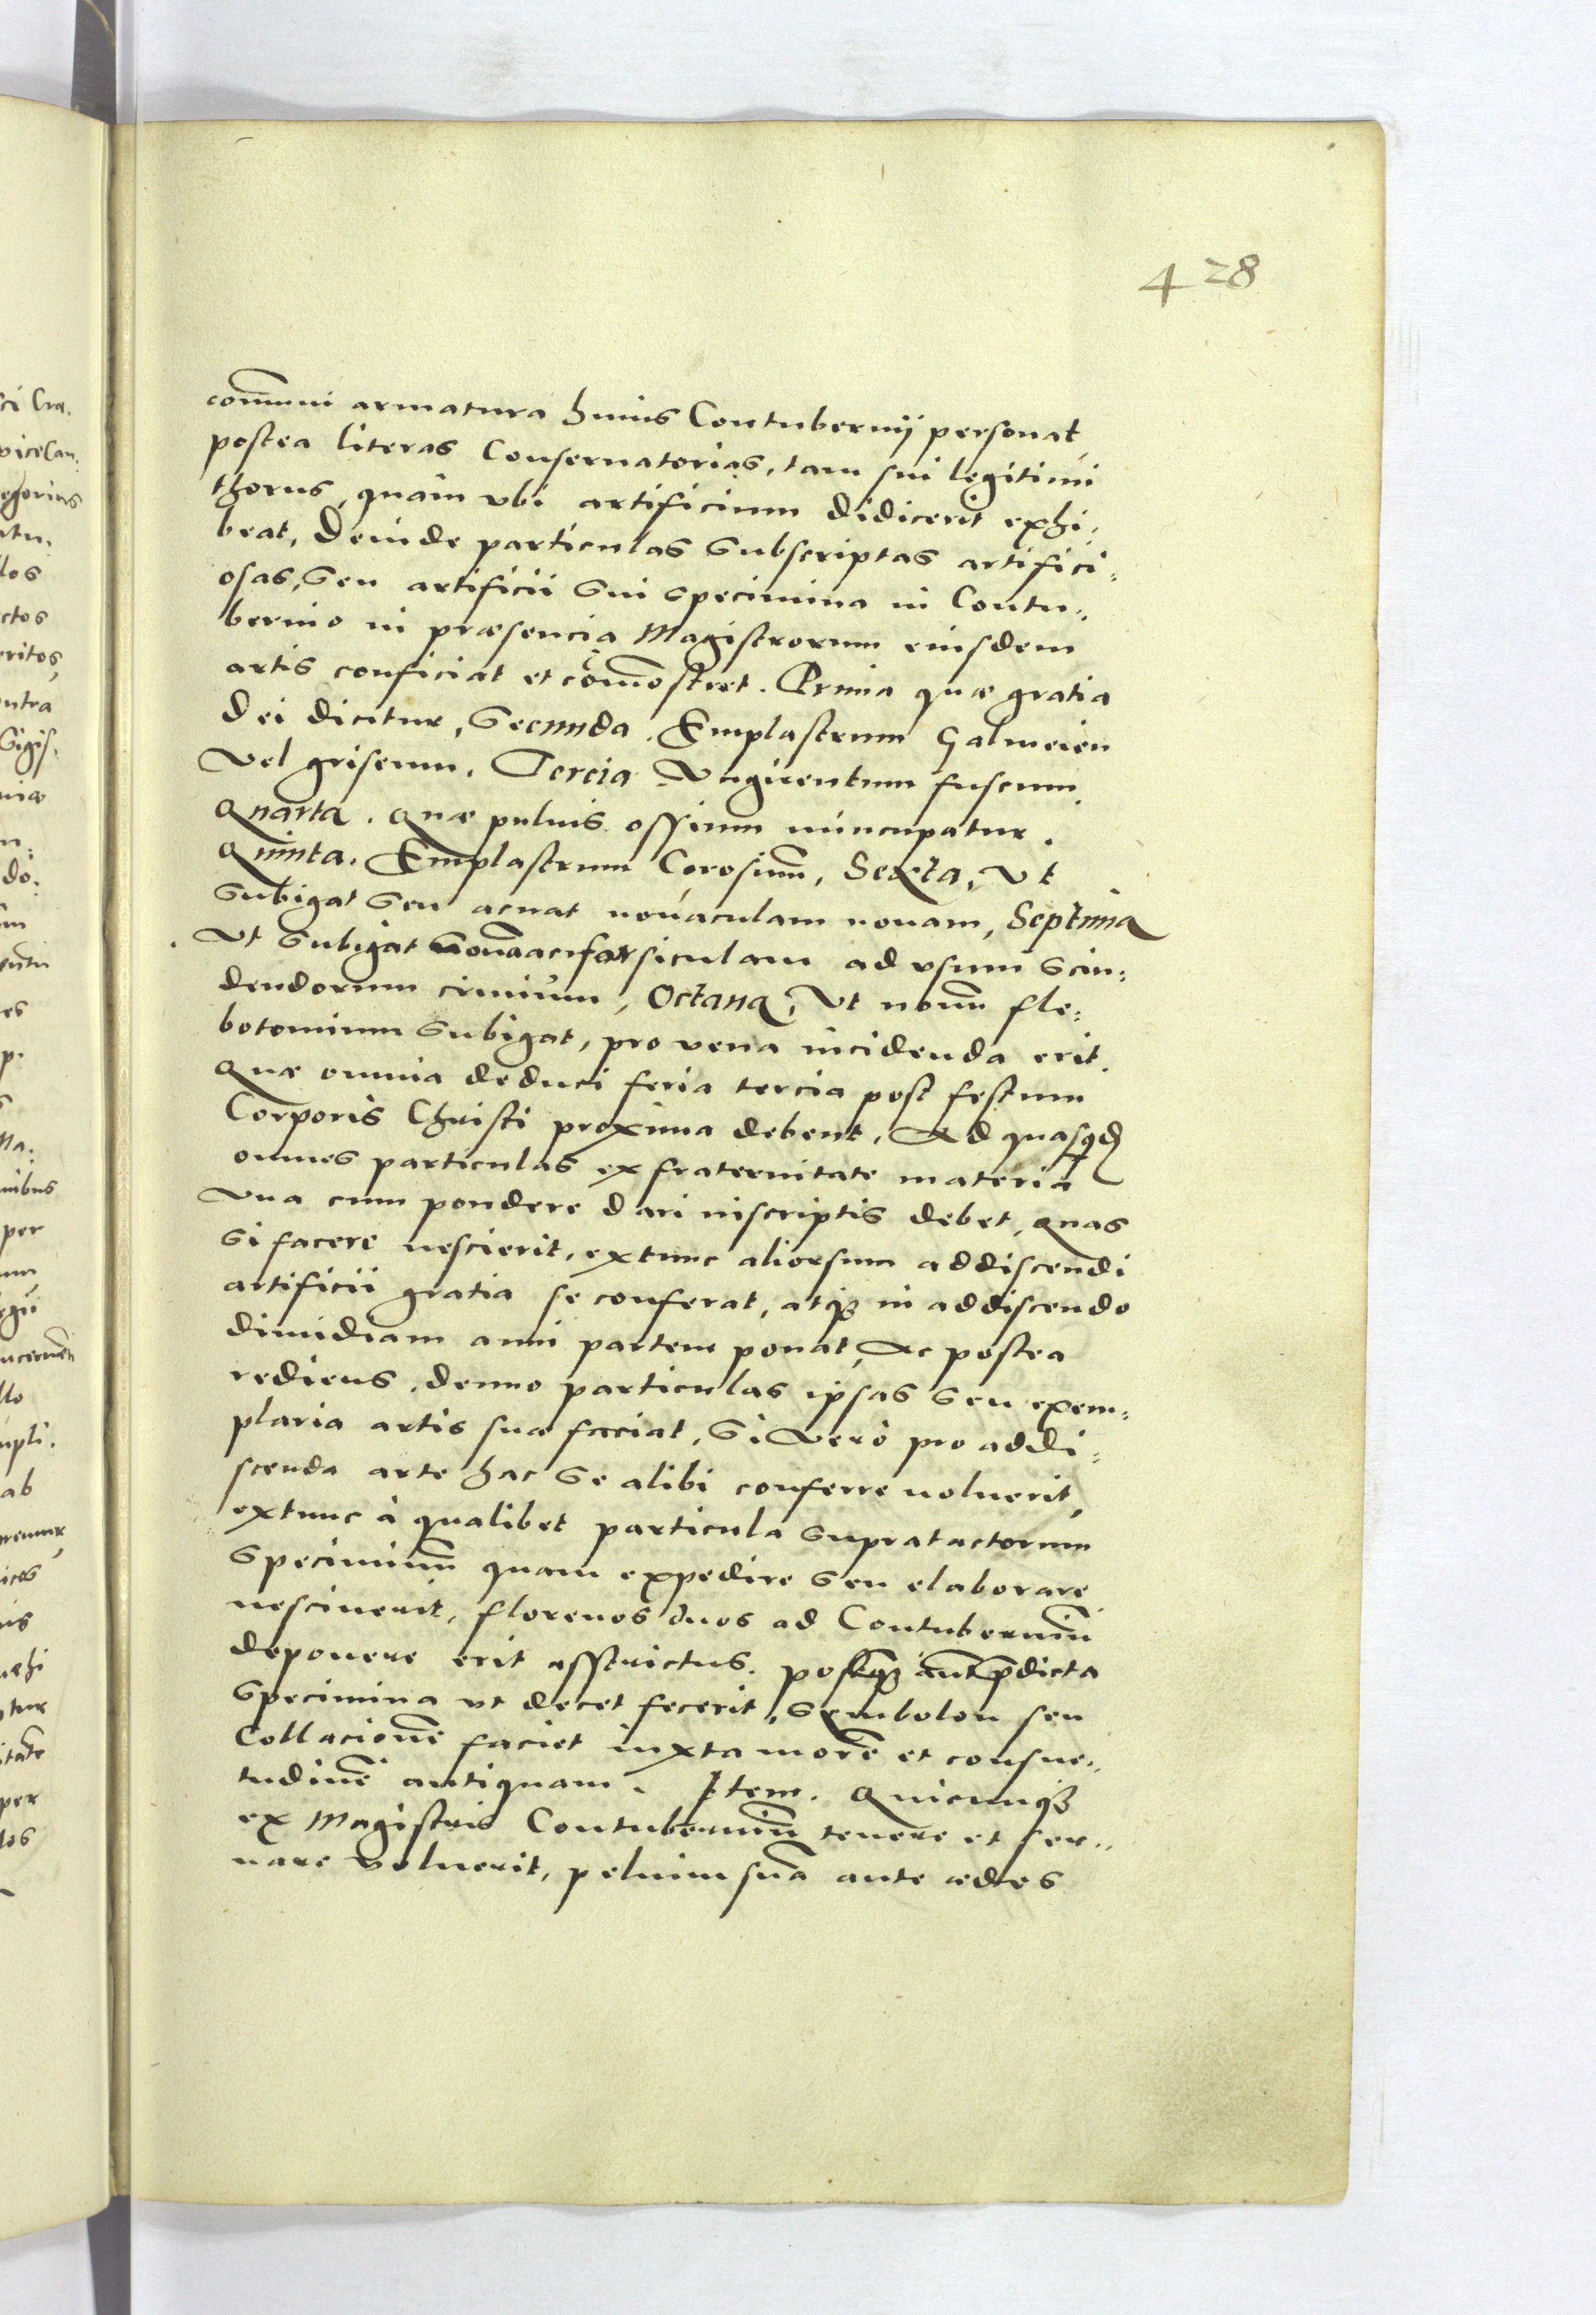 428
com̃uni armatura huius Contubernij personat,
postea literas Conseruatorias, tam sui legitimi
thorus, quàm vbi artificium didicerit exhi¸
beat, Deinde particulas subscriptas artifici¸
osas, seu artificii sui specimina in Contu¸
bernio in præsencia Magistrorum eiusdem
artis conficiat et com̃ostret. Prima quæ gratia
Dei dicitur, Secunda. Emplastrum Galmeien
Vel griseum. Tercia Vnguentum fuscum.
Quarta. Quæ puluis ossium nuncupatur.
Quinta. Emplastrum Corosiuũ, Sexta, Vt
subigat seu acuat nouaculam nouam, Septima
Vt subigat forsiculam ad vsum scin¸
dendorum crinium, Octaua, Vt nouũ fle¸
botomium subigat, pro vena incidenda erit.
Quæ omnia deduci feria tercia post festum
Corporis Christi proxima debent, Ad quasq́ꝫ
omnes particulas ex fraternitate materia
Vna cum pondere dari inscriptis debet, quas
si facere nescierit, extunc aliorsum addiscendi
artificii gratia se conferat, atqꝫ in addiscendo
dimidiam anni partem ponat, Ac postea
rediens, denuo particulas ipsas seu exem¸
plaria artis suæ faciat, Si Verò pro addi¸
scenda arte hac se alibi conferre noluerit,
extunc à qualibet particula supratactorum
speciminũ quam expedire seu elaborare
nesciuerit, florenos duos ad Contuberniũ
deponere erit asstrictus. postqꝫ aut̃ p̃dicta
specimina vt decet fecerit, symbolon seu
Collacionẽ faciet iuxta morẽ et consue¸
tudinẽ antiquam. Item. Quicunqꝫ
ex Magistris Contuberniũ tenere et ser¸
uare voluerit, peluim suã ante ædes